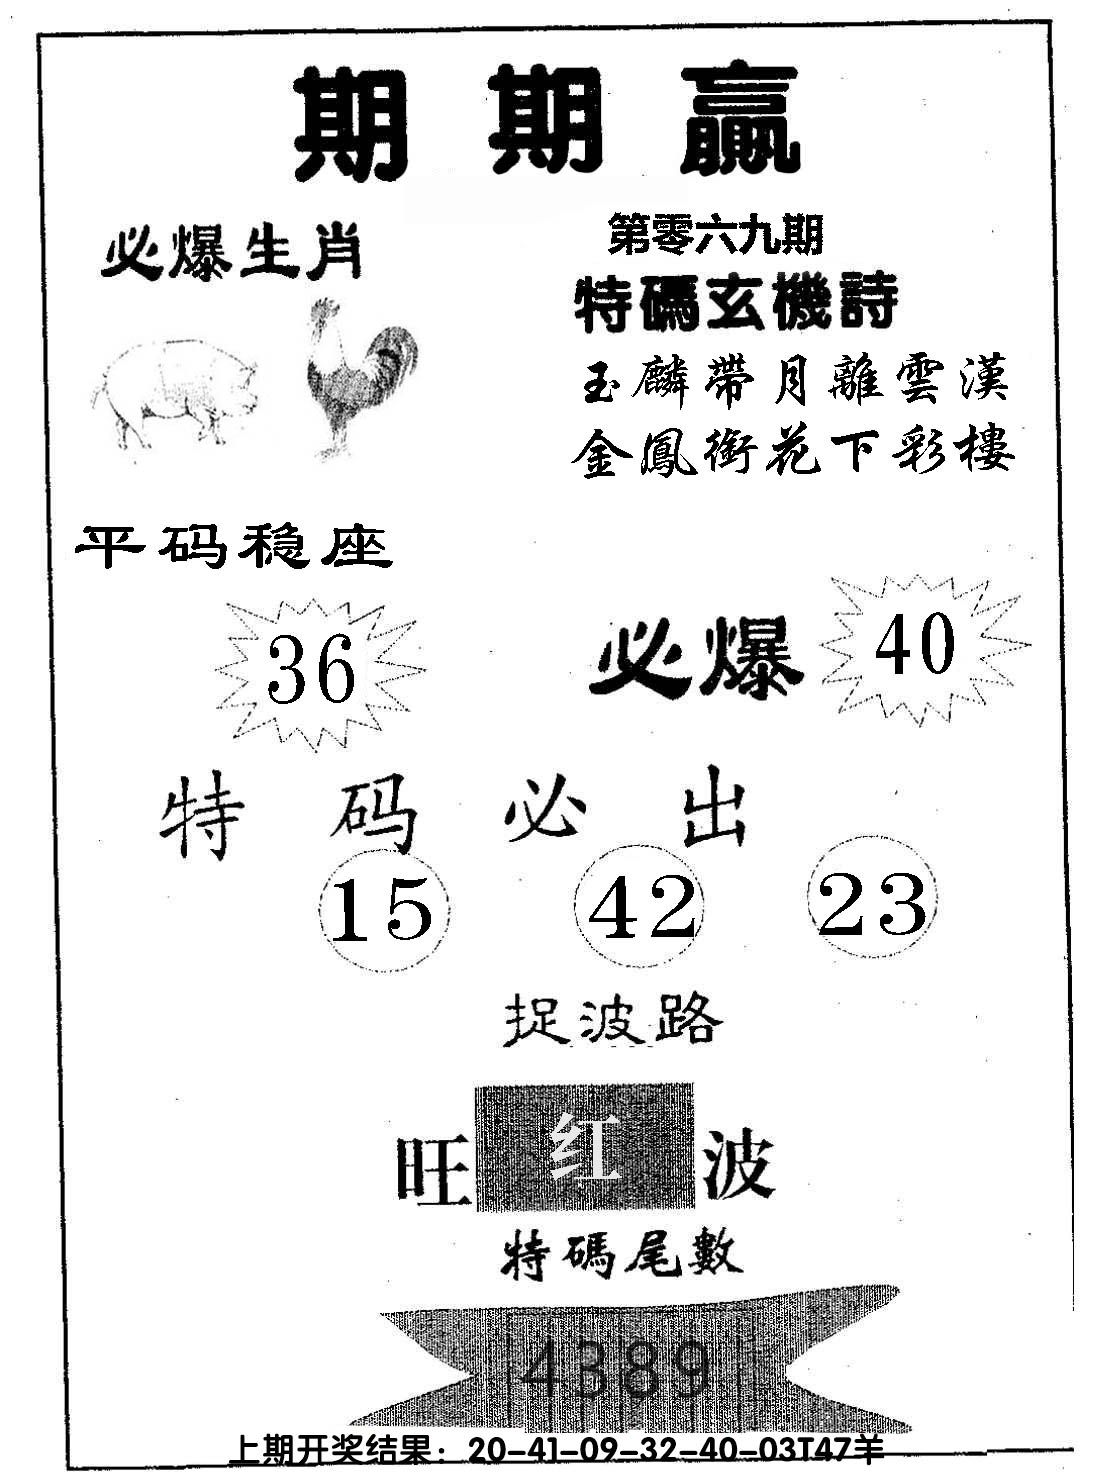 期期赢
必爆生肖
第零六九期
特碼玄機詩
玉麟帶月離雲漢
金鳳銜花下彩樓
平码稳座
36
必爆
40
特码必出
15 42 23
捉波路
旺红波
特碼尾數
4389
上期开奖结果：20-41-09-32-40-03T47羊